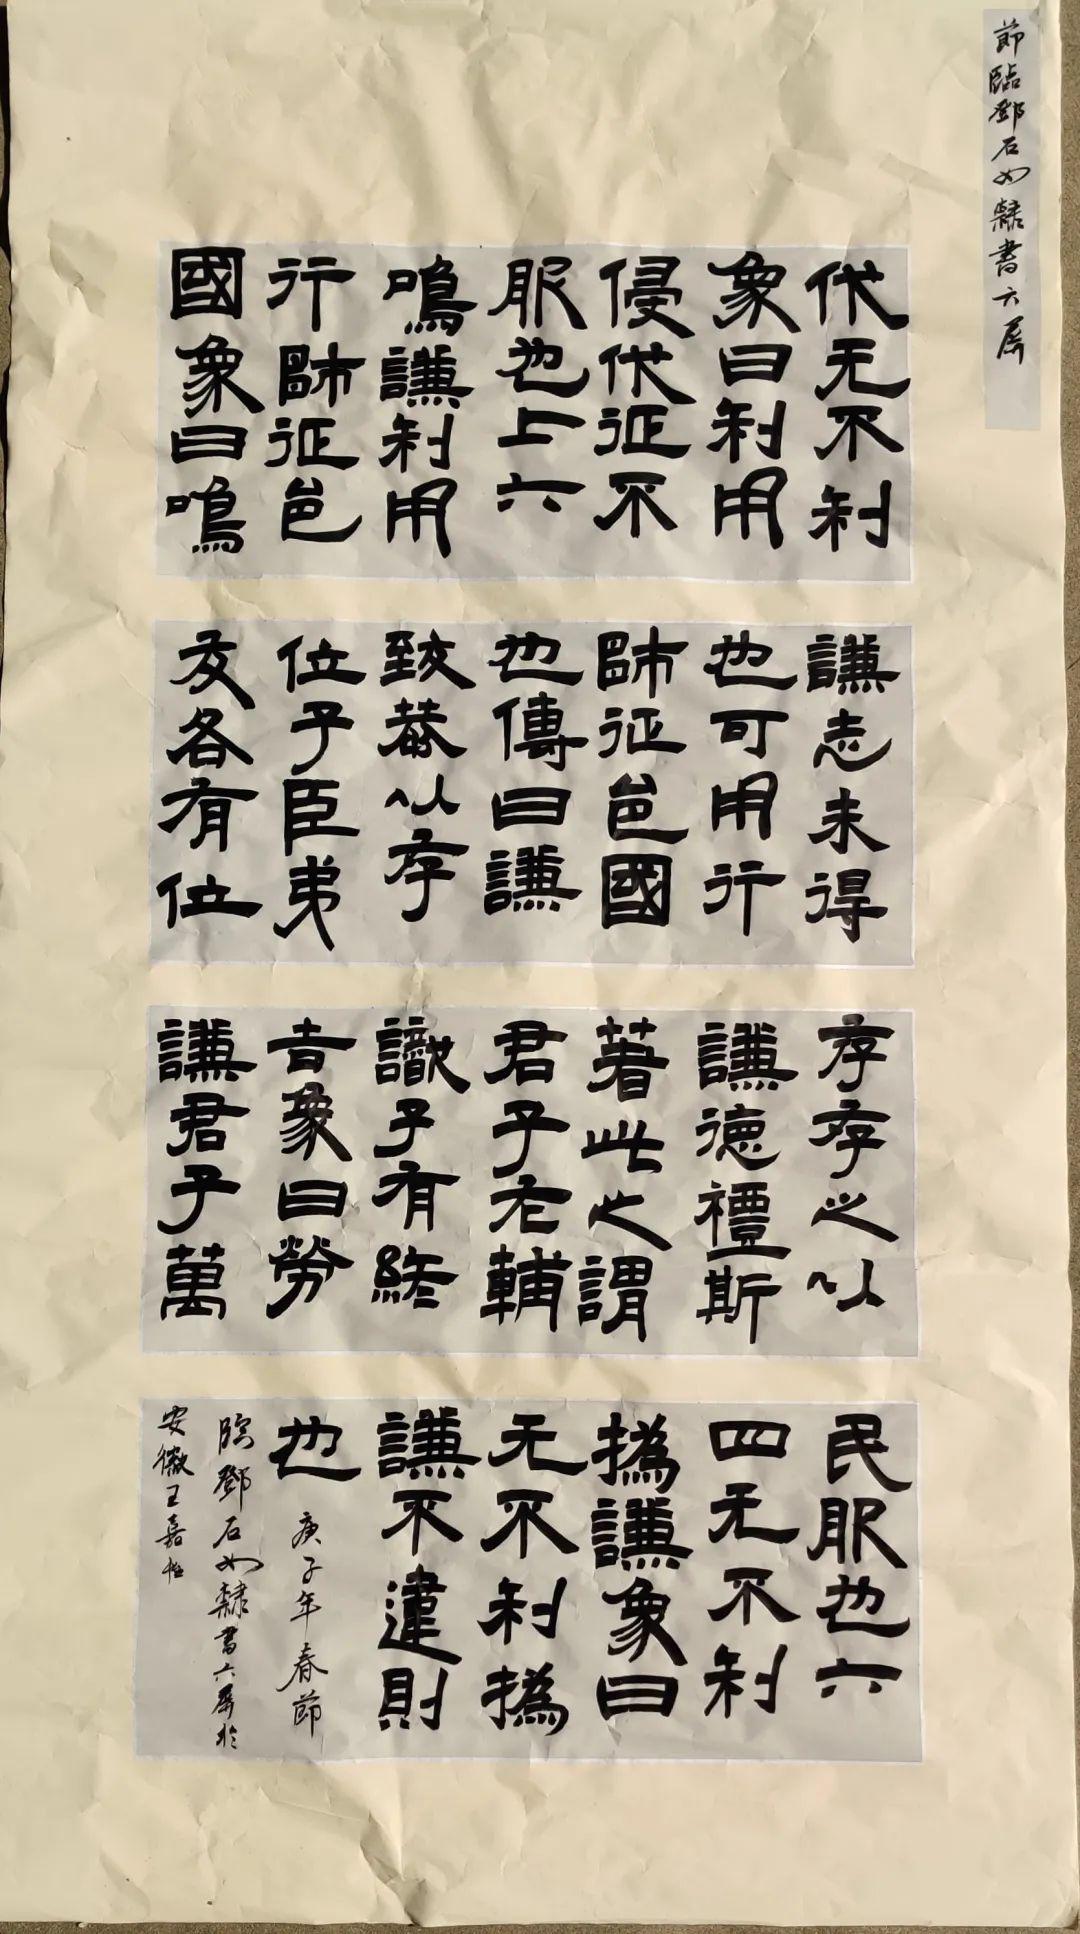 節臨鄧石如隸書六屏
伐无不利
象曰利用
侵伐征不
服也上六
鳴謙利用
行師征邑
國象曰鳴
謙志未得
也可用行
師征邑國
也傳曰謙
致恭以存
位子臣弟
友各有位
存存之以
謙德禮斯
著此之謂
君子右輔
識子有終
吉象曰勞
謙君子萬
民服也六
四无不利
撝謙象曰
无不利撝
謙不違則
也 庚子年春節
臨鄧石如隸書六屏於
安徽王嘉怡